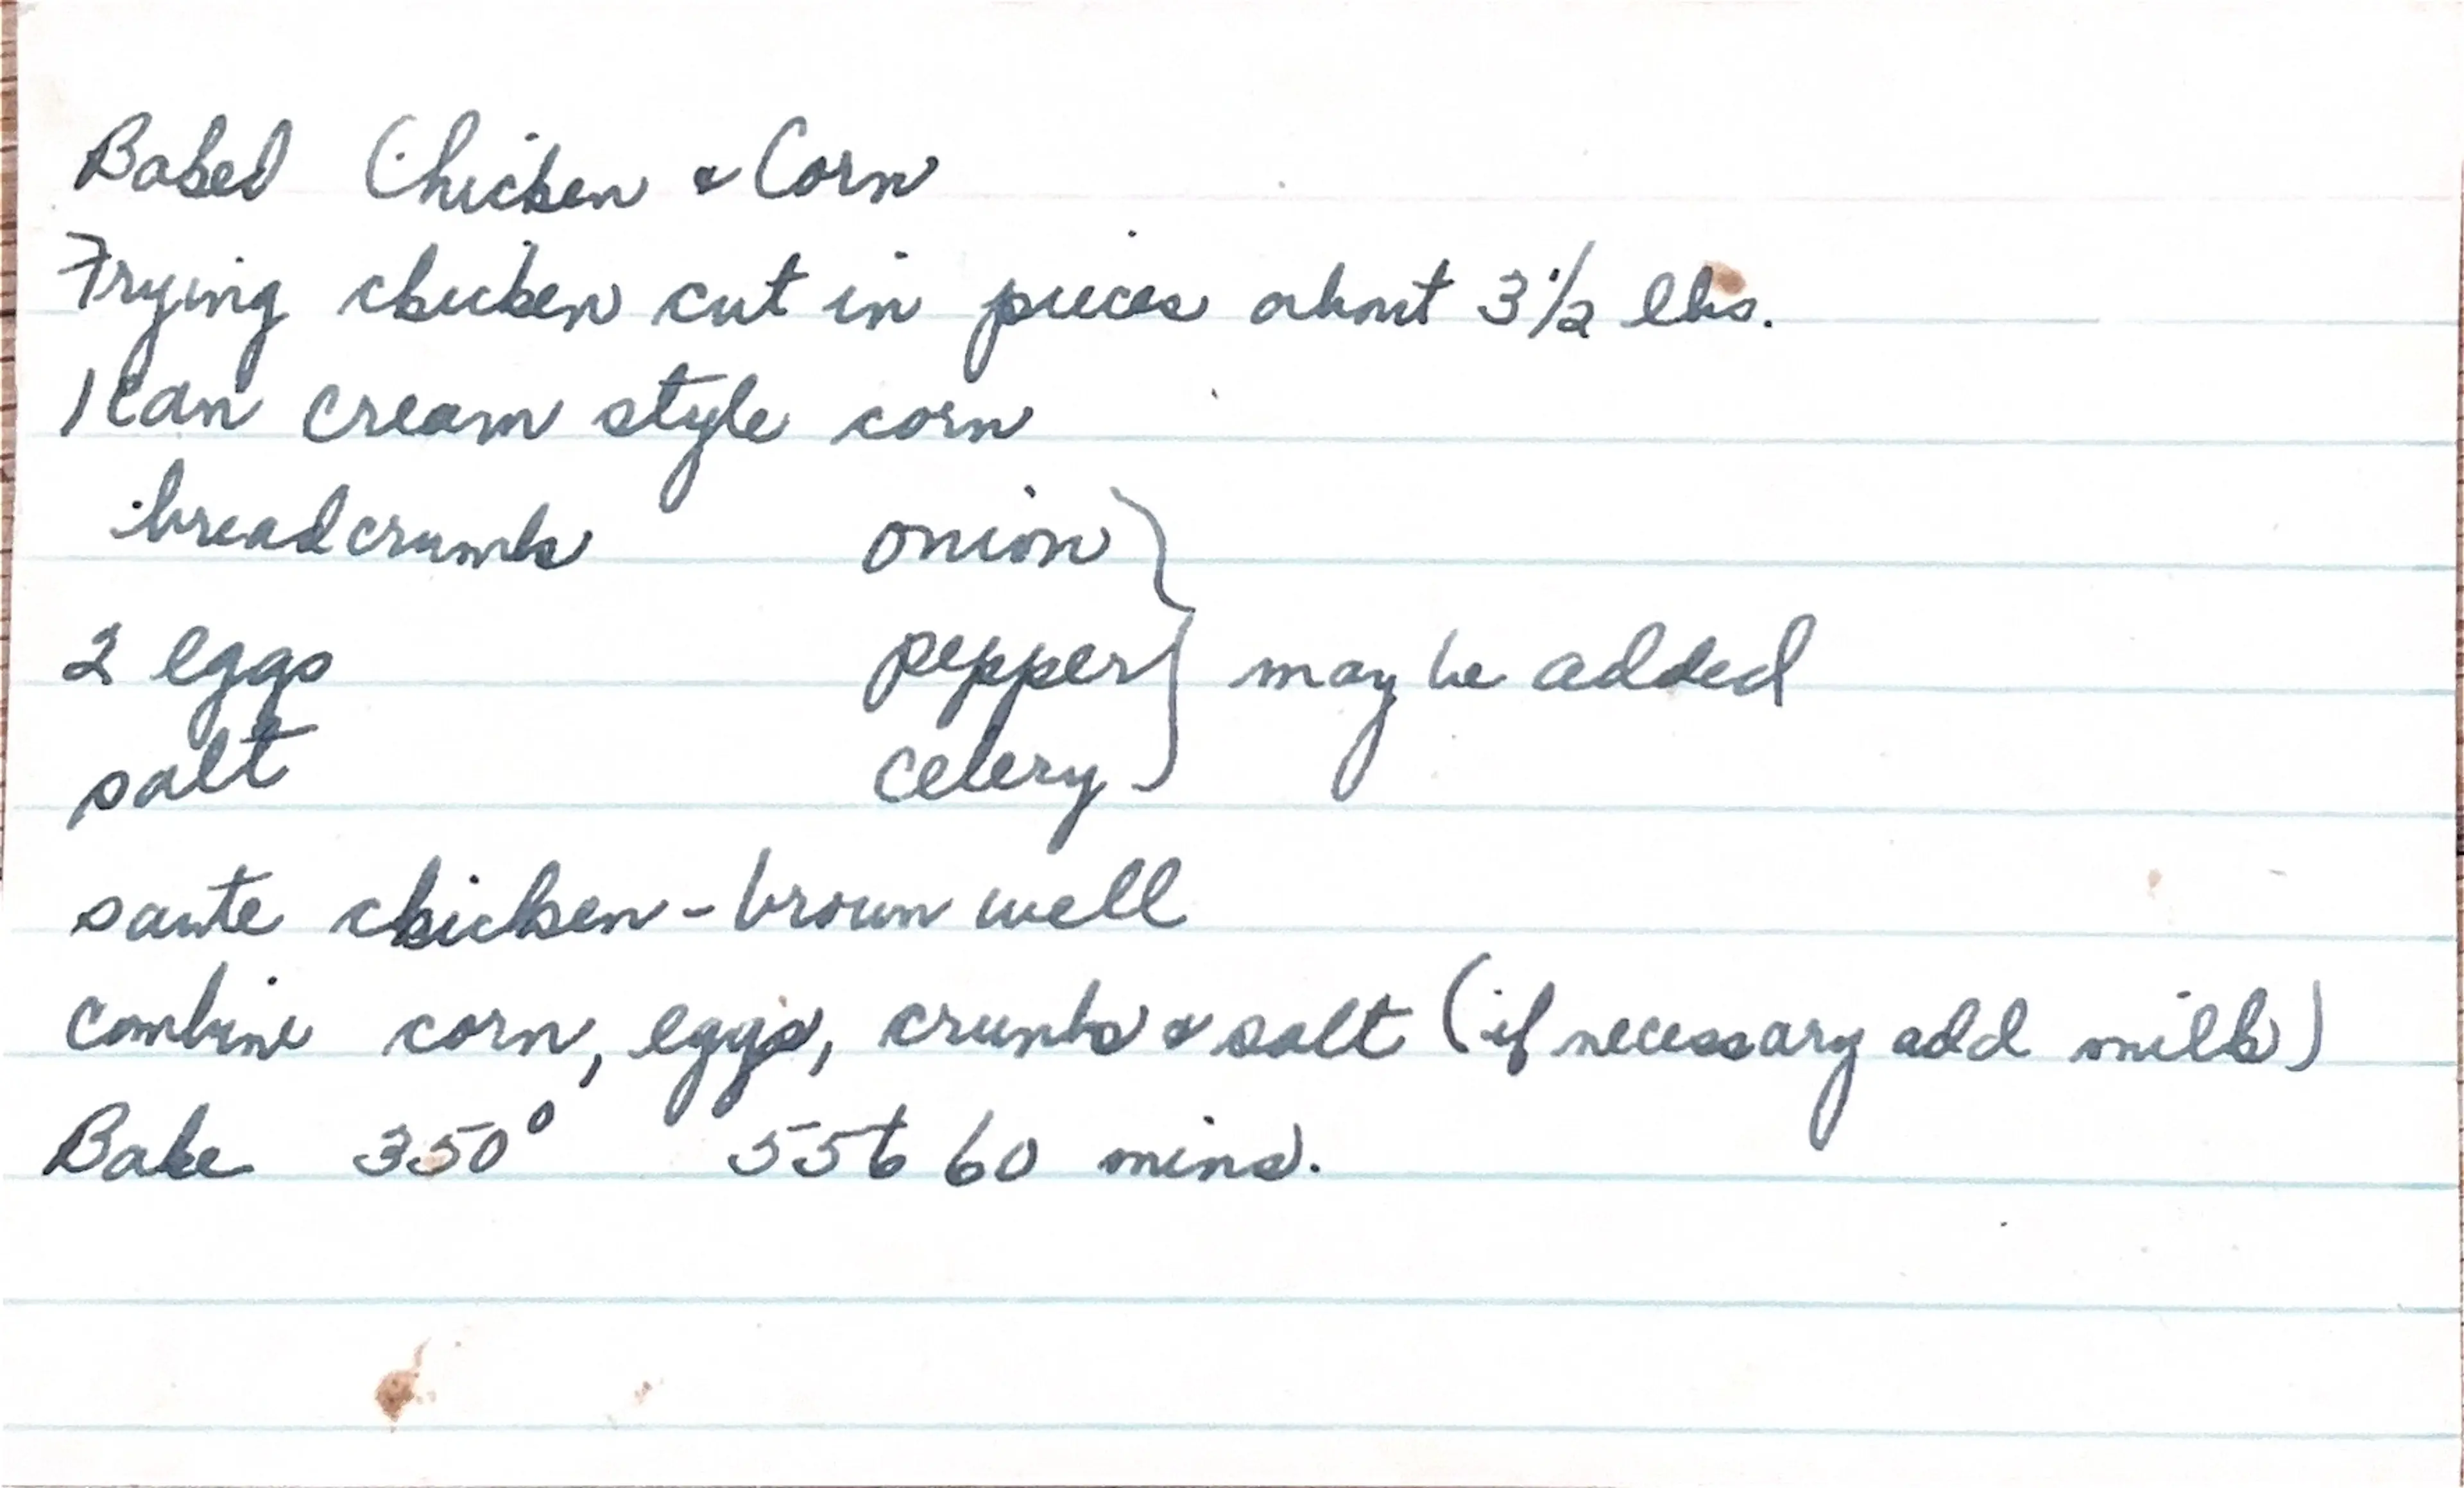 Baked Chicken & Corn
Frying chicken cut in pieces about 3 1/2 lbs.
1 can cream style corn
breadcrumbs onion
2 eggs pepper } may be added
salt celery
saute chicken - brown well
combine corn, eggs, crumbs & salt (if necessary add milk)
Bake 350° 55 to 60 mins.